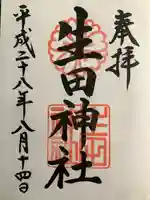 奉拝
生田神社
平成二十八年八月十四日